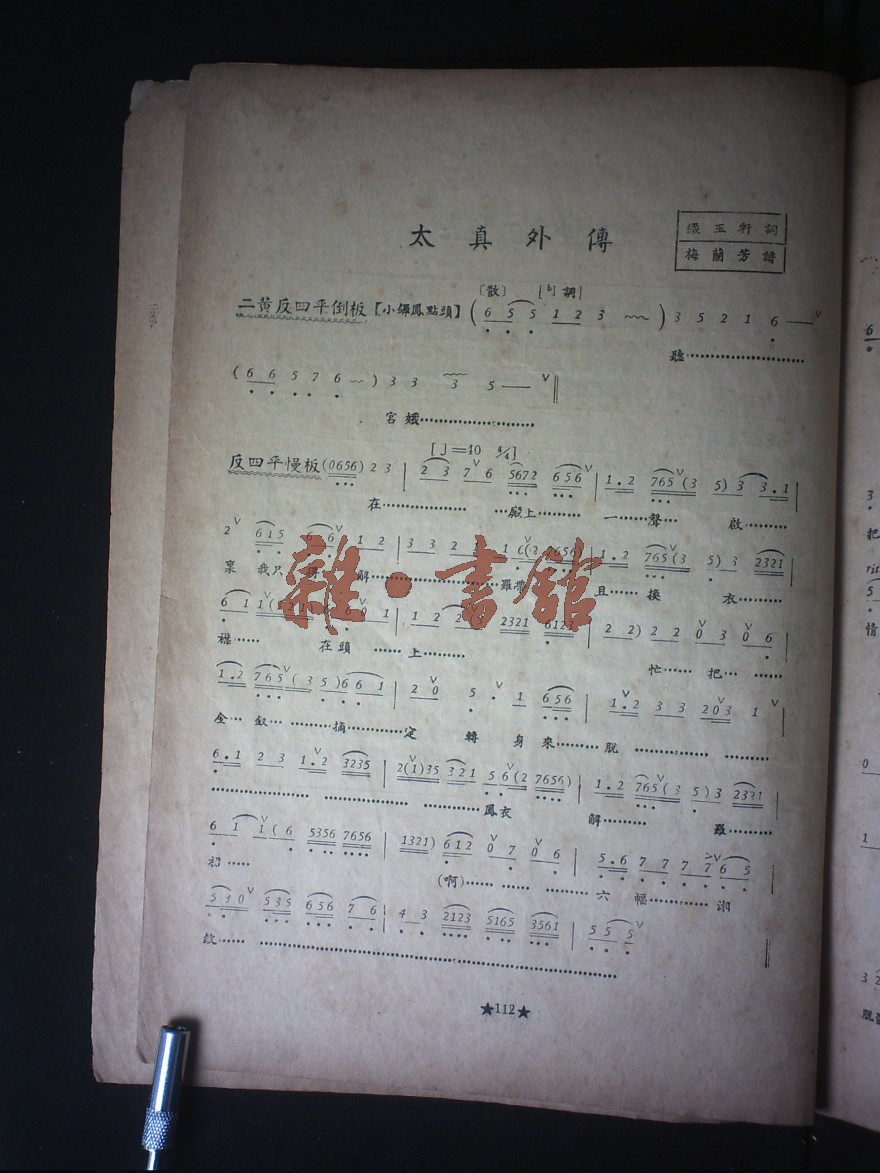 太真外傳
綴玉軒詞
梅蘭芳譜
〔散〕 [♭]調]
二黄反四平倒板【小鑼鳳點頭】( 6 5 5 1 2 3 ) 3 5 2 1 6 —
聽
( 6 6 5 7 6 ) 3 3 3 5 —
宮娥
[♩=40 4/4]
反四平慢板(0656) 2 3 | 2 3 7 6 5672 656 | 1.2 765(3 5) 3 3.1 |
在 殿上 一 聲 啟
2 615 6 6 1 2 | 3 3 2 1 | 1.2 765(3 5) 3 2321 |
稟 我只 解 羅帶 且 換 衣
2321 6123 | 2 2) 2 2 0 3 0 6 |
在頭 上 忙 把
1.2 765(3 5) 6 6 1 | 2 0 5 · 1 656 | 1.2 3 3 2 0 3 1
金 釵 摘 定 轉 身 來 脫
6.1 2 3 1.2 3235 | 2(1)35 321 5 6(2 7656) | 1.2 765(3 5) 3 2321 |
鳳衣 解 羅
6 1 1(6 5356 7656 | 1321) 612 0 7 0 6 | 5.6 7 7 7 7 6 5
(啊) 六 幅 湘
5 3 0 535 656 7 6 | 4 3 2123 5165 3561 | 5 5 5
紋
★112★
雜·書館